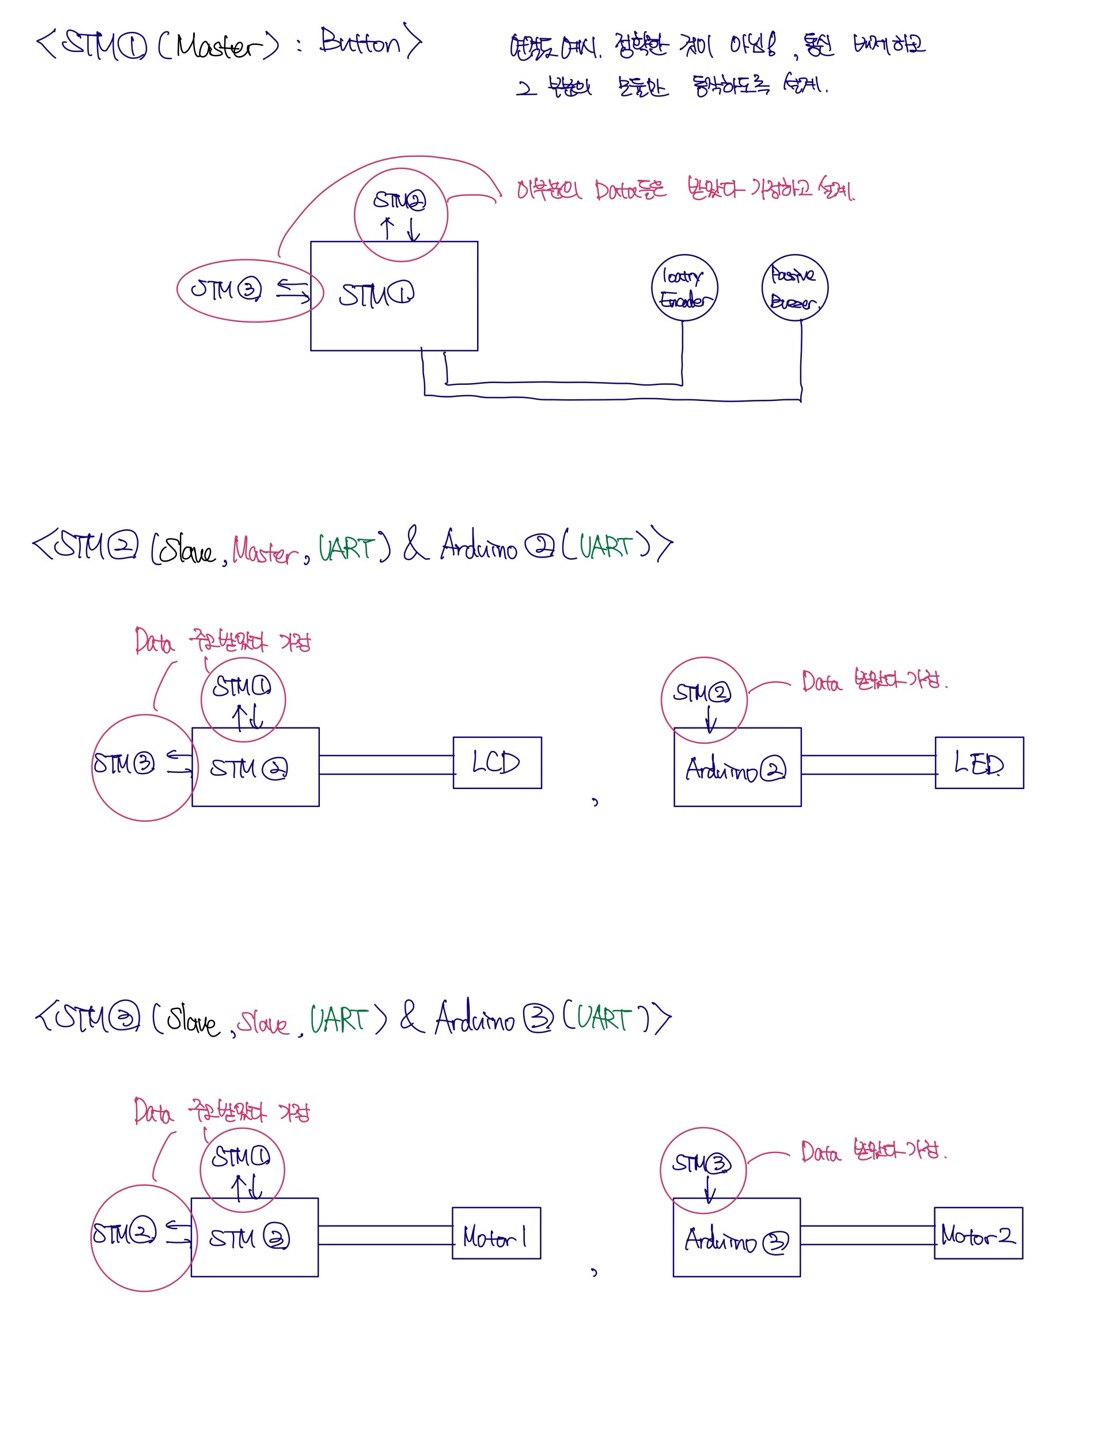 <STM①(Master) : Button>
연결도 예시. 정확한 것이 아님을, 통신 배제하고
그 부분의 모듈만 동작하도록 설계.
이부분의 Data등은 받았다 가정하고 설계.
STM②
STM③
STM①
Encoder
Passive
Buzzer.
<STM②(Slave, Master, UART) & Arduino②(UART)>
Data 주고받았다 가정
STM①
STM③
STM②
LCD
,
Data 받았다 가정.
STM②
Arduino②
LED
<STM③(Slave, Slave, UART) & Arduino③(UART)>
Data 주고받았다 가정
STM①
STM②
STM③
Motor1
,
Data 받았다 가정.
STM③
Arduino③
Motor2